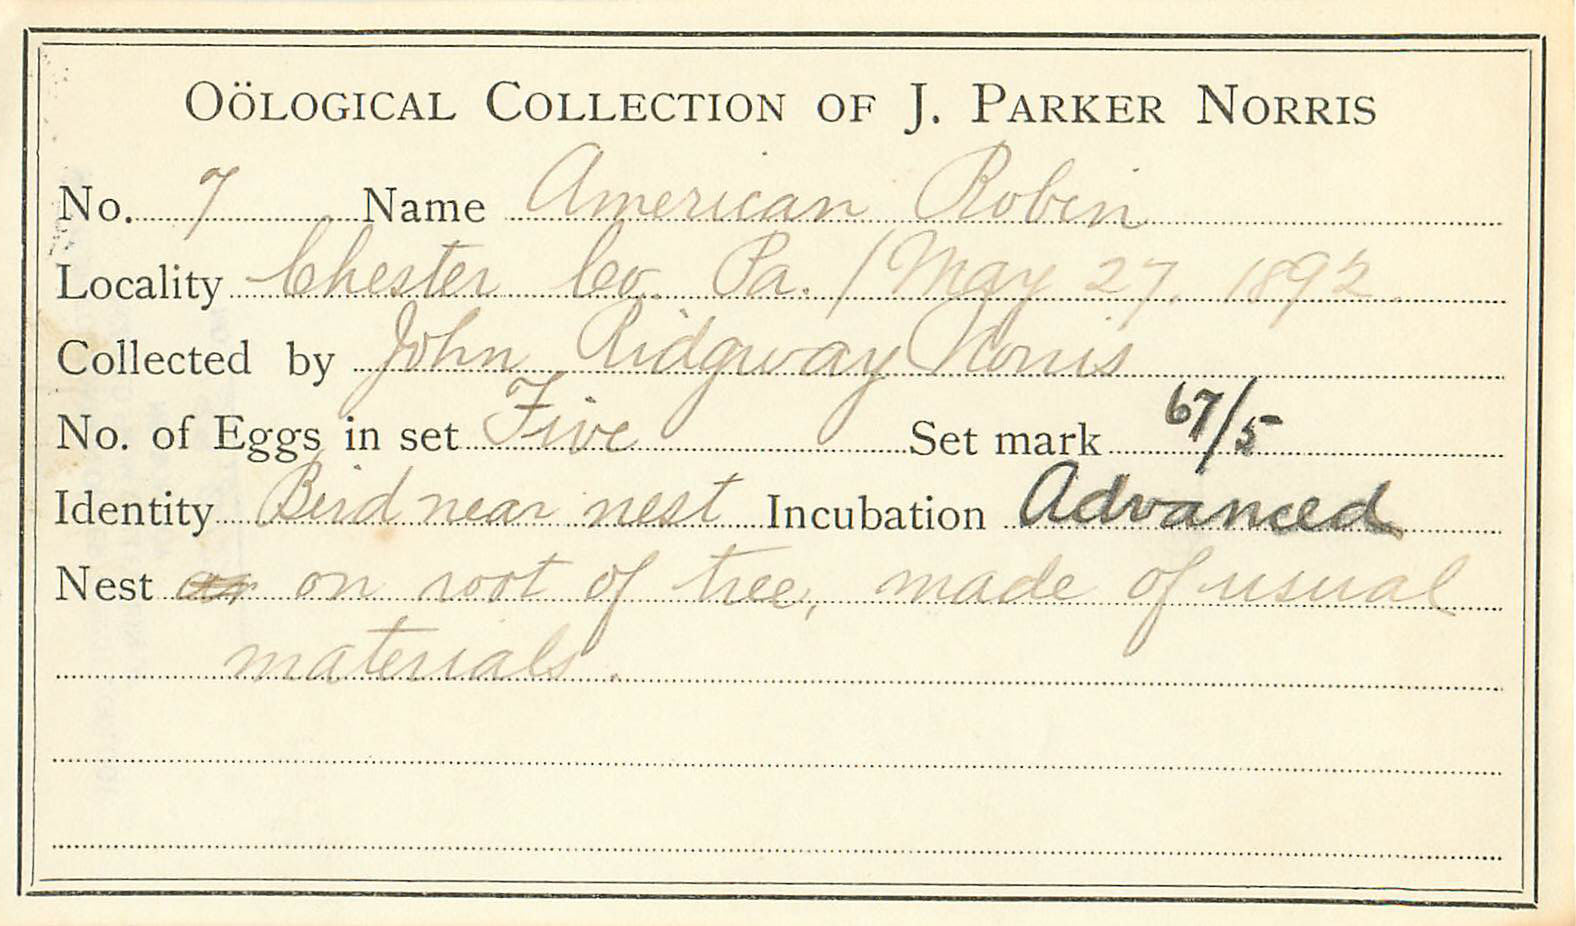 OÖLOGICAL COLLECTION OF J. PARKER NORRIS
No. 7 Name American Robin
Locality Chester Co. Pa. / May 27, 1892.
Collected by John Ridgway Norris
No. of Eggs in set Five Set mark 67/5
Identity Bird near nest Incubation Advanced
Nest on root of tree, made of usual
materials.